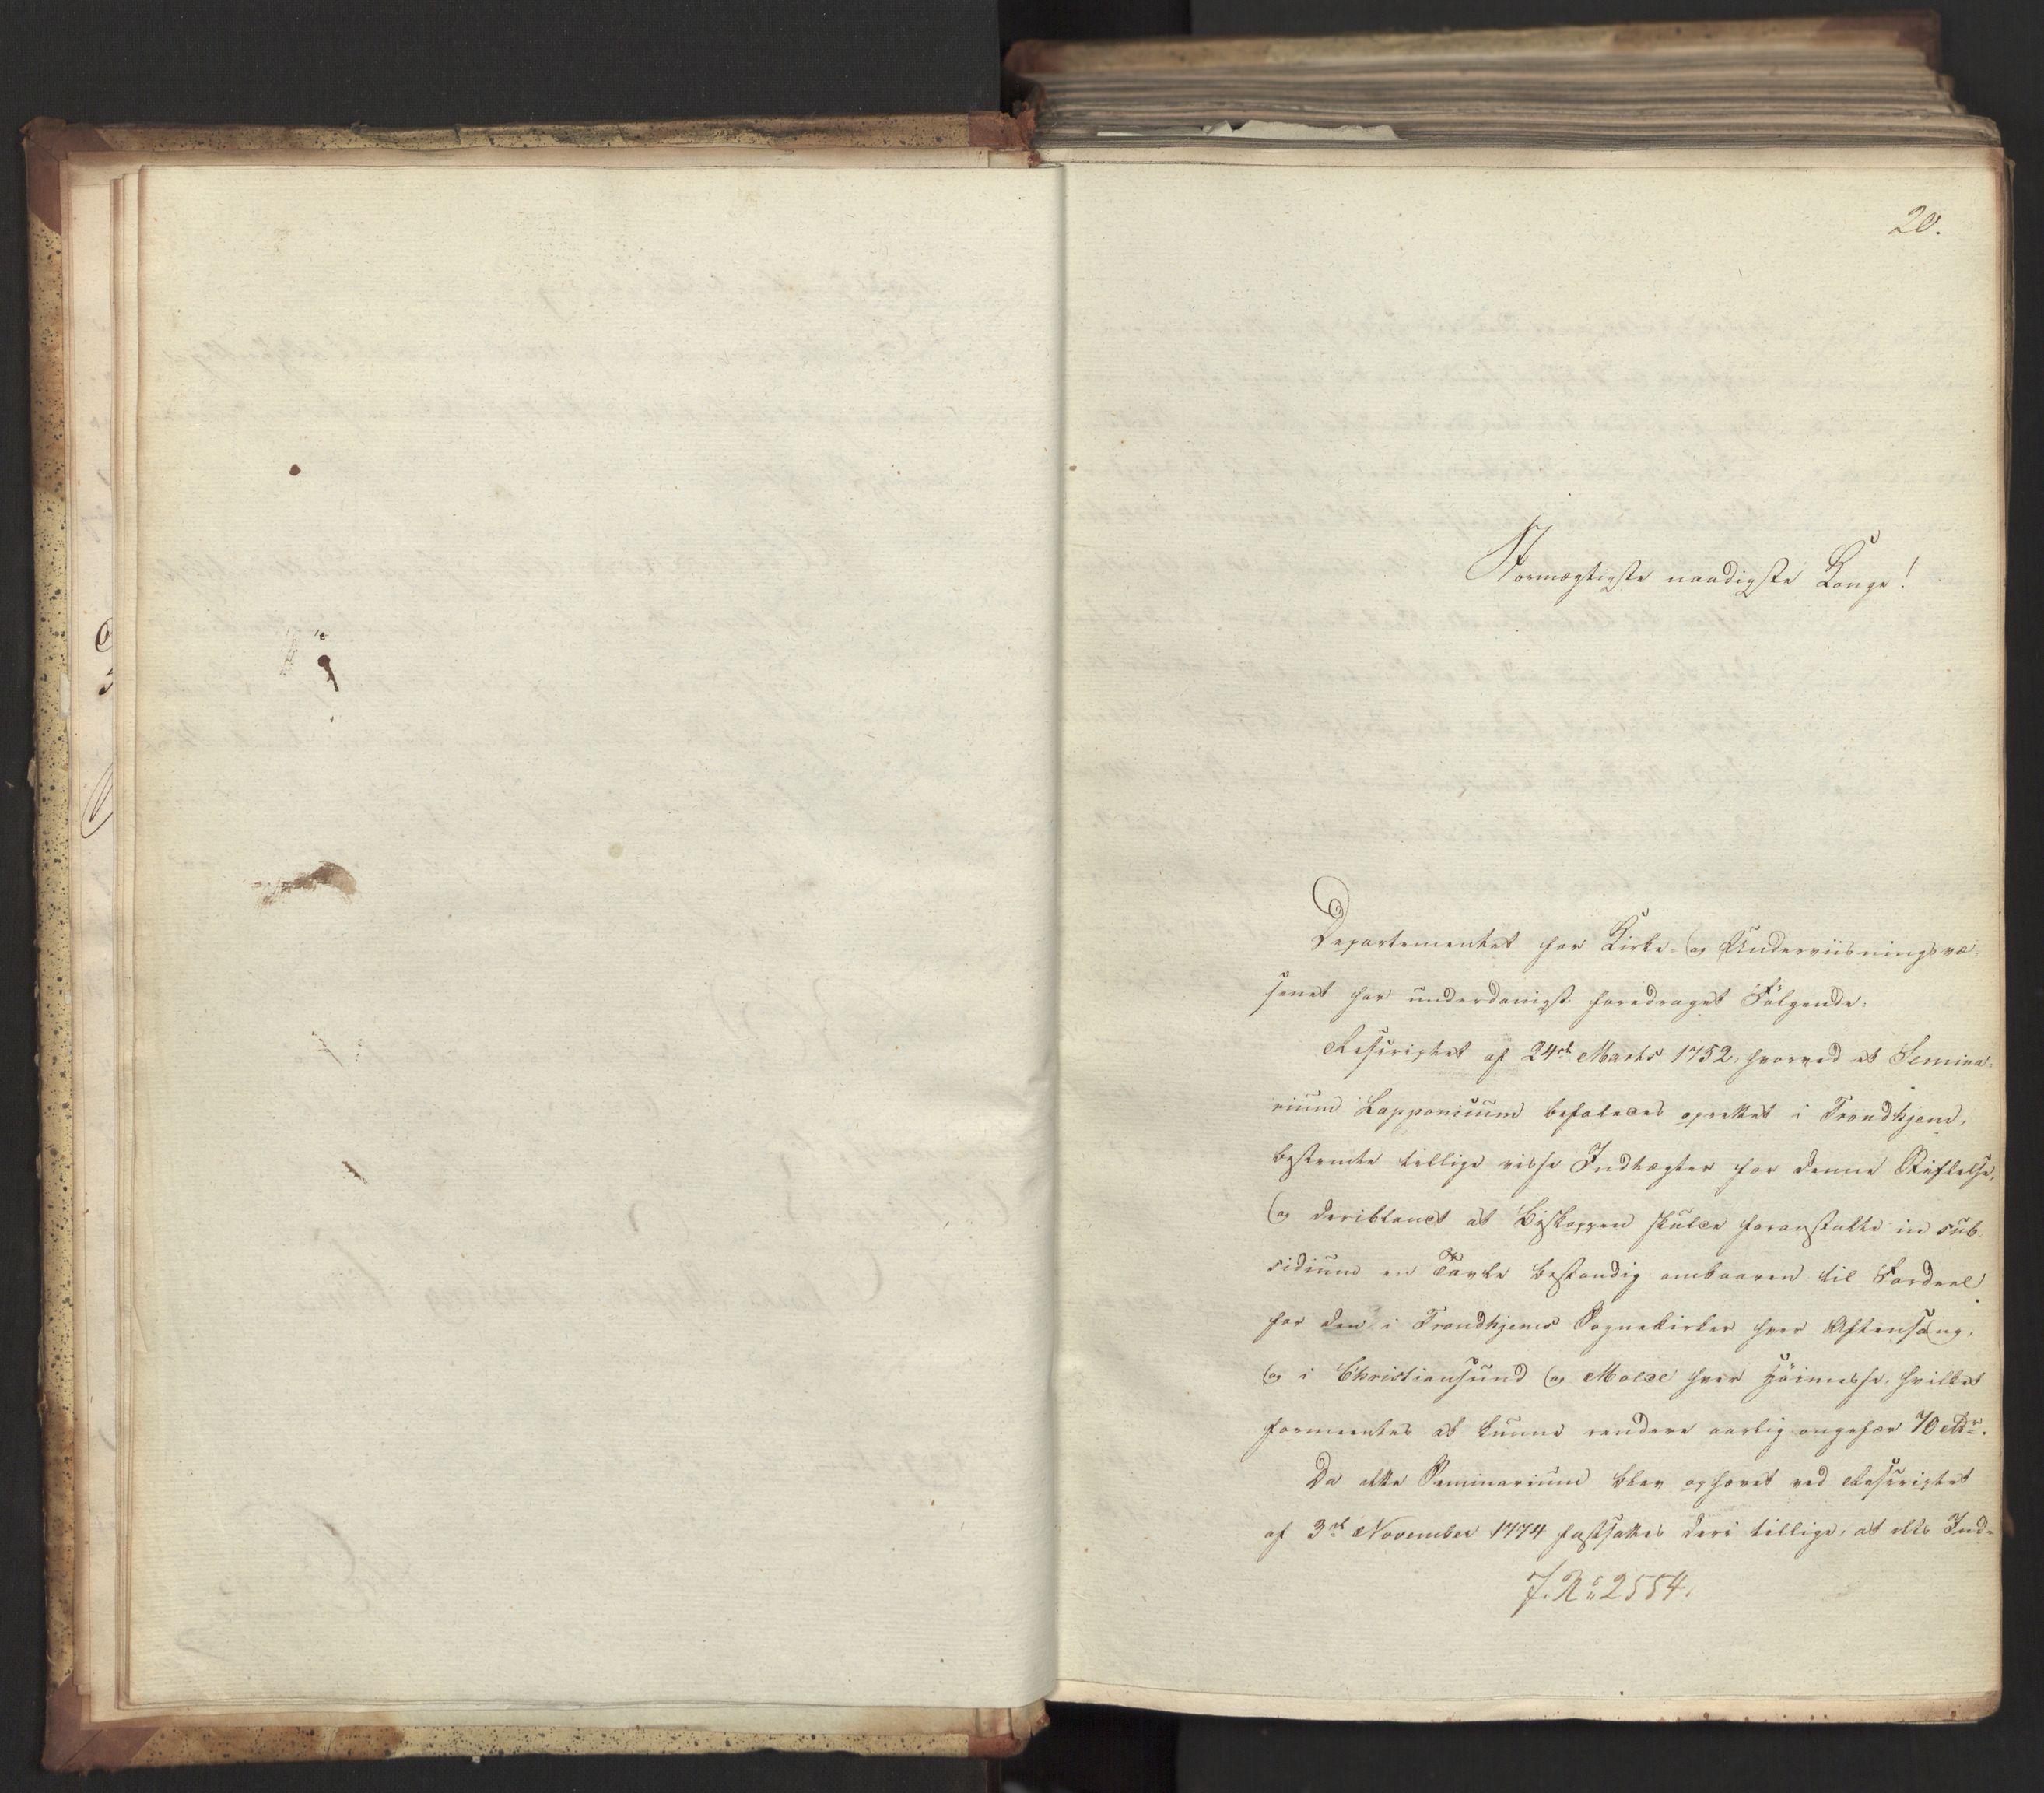 20.
Stormægtigste naadigste Konge!
Departementet for Kirke- og Underviisningsvæ-
senet har underdanigst foredraget Følgende:
Rescriptet af 24de Marts 1752, hvorved et Semina-
rium Lapponicum befaledes oprettet i Trondhjem,
bestemte tillige visse Indtægter for denne Stiftelse,
og deriblandt at Biskoppen skulde foranstalte in sub-
sidium en Tavle bestandig ombaaren til Fordeel
for den i Trondhjems Sognekirker hver Aftensang,
og i Christiansund og Molde hver Høimesse, hvilket
formeentes at kunne rendere aarlig ongefær 70 Rdr.
Da dette Seminarium blev ophævet ved Rescriptet
af 3de November 1774 fastsattes deri tillige, at dets Ind-
J. No 2554.